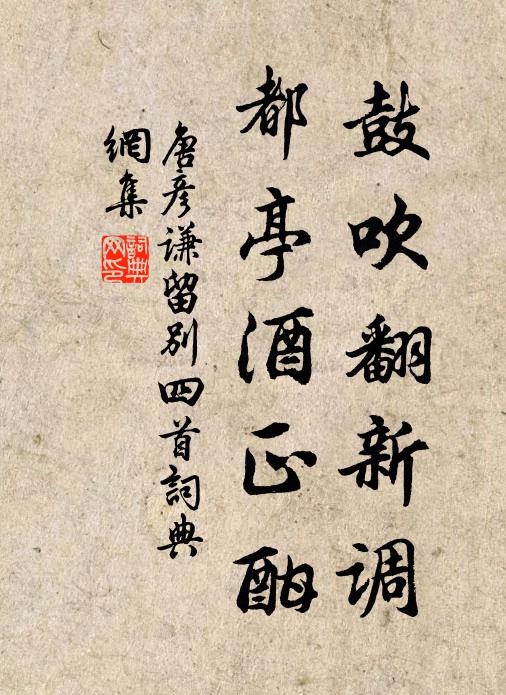 鼓吹翻新调
都亭酒正酣
唐彦谦留别四首词典
網集
词典
网印